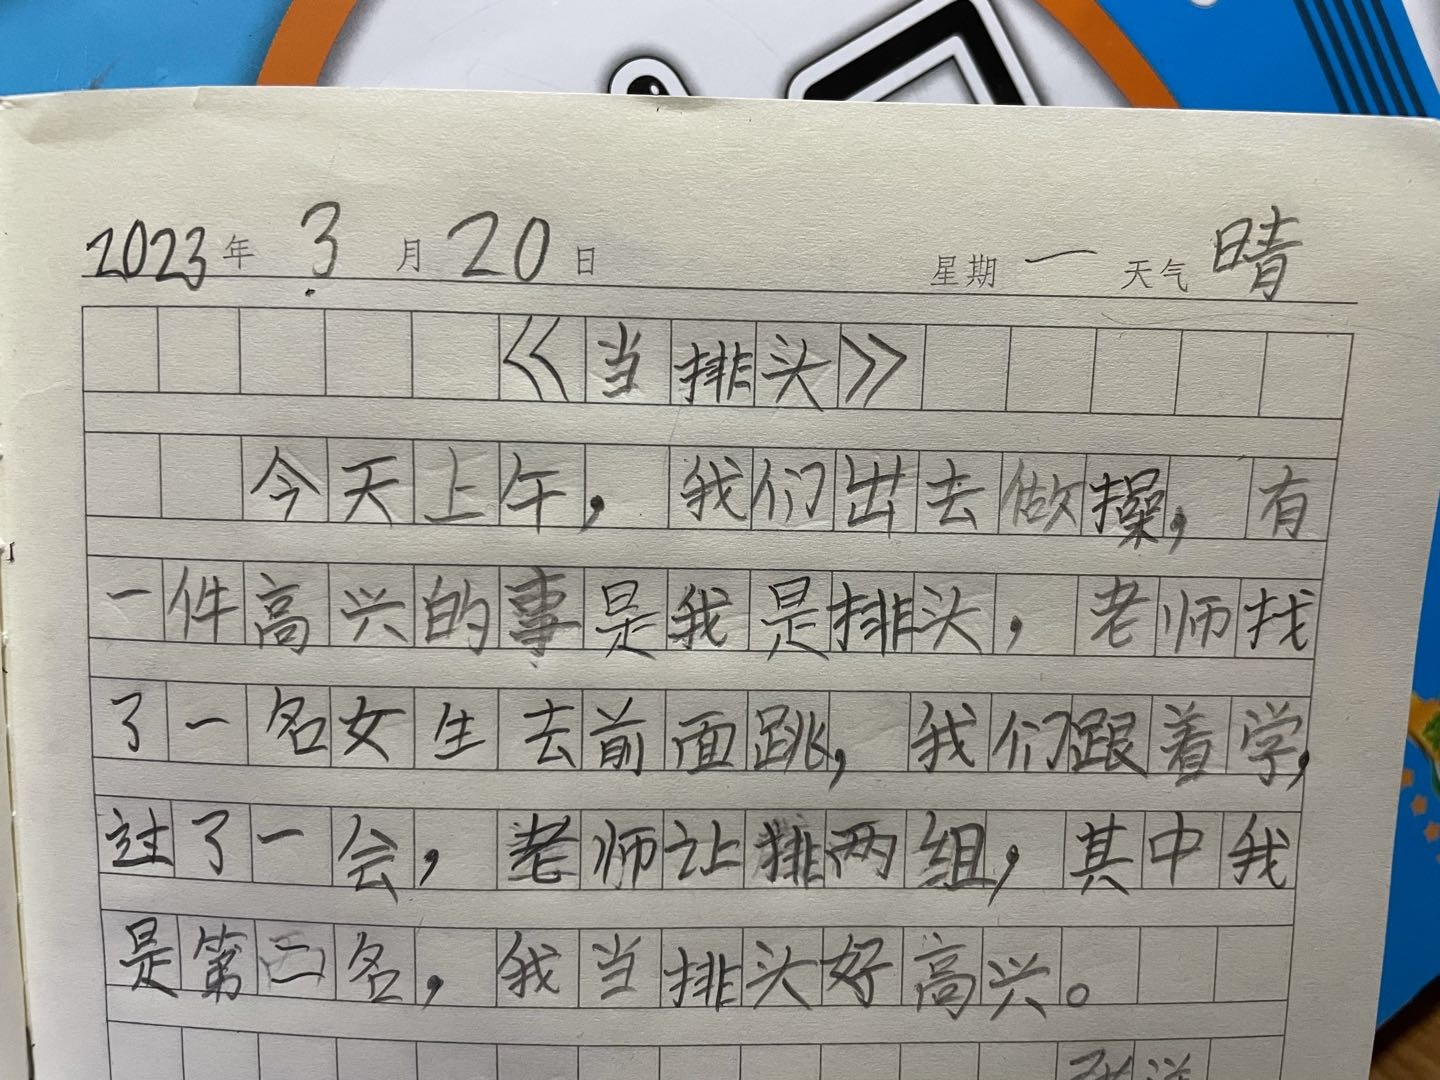 2023年 3月 20日 星期一 天气 晴
《当排头》
今天上午，我们出去做操，有
一件高兴的事是我是排头，老师找
了一名女生去前面跳，我们跟着学，
过了一会，老师让排两组，其中我
是第二名，我当排头好高兴。